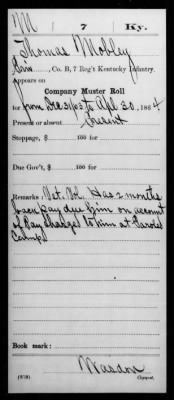 M 7 Ky.
Thomas Mobley
Priv, Co. B, 7 Reg't Kentucky Infantry.
Appears on
Company Muster Roll
for from Dec 31/63 to Apl 30, 1864
Present or absent Present
Stoppage, $ 100 for
Due Gov't, $ 100 for
Remarks: Vet. Vol. Has 2 months
back pay due him on account
of Pay charged to him at Parole
Camp
Book mark:
(858)
Copyist.